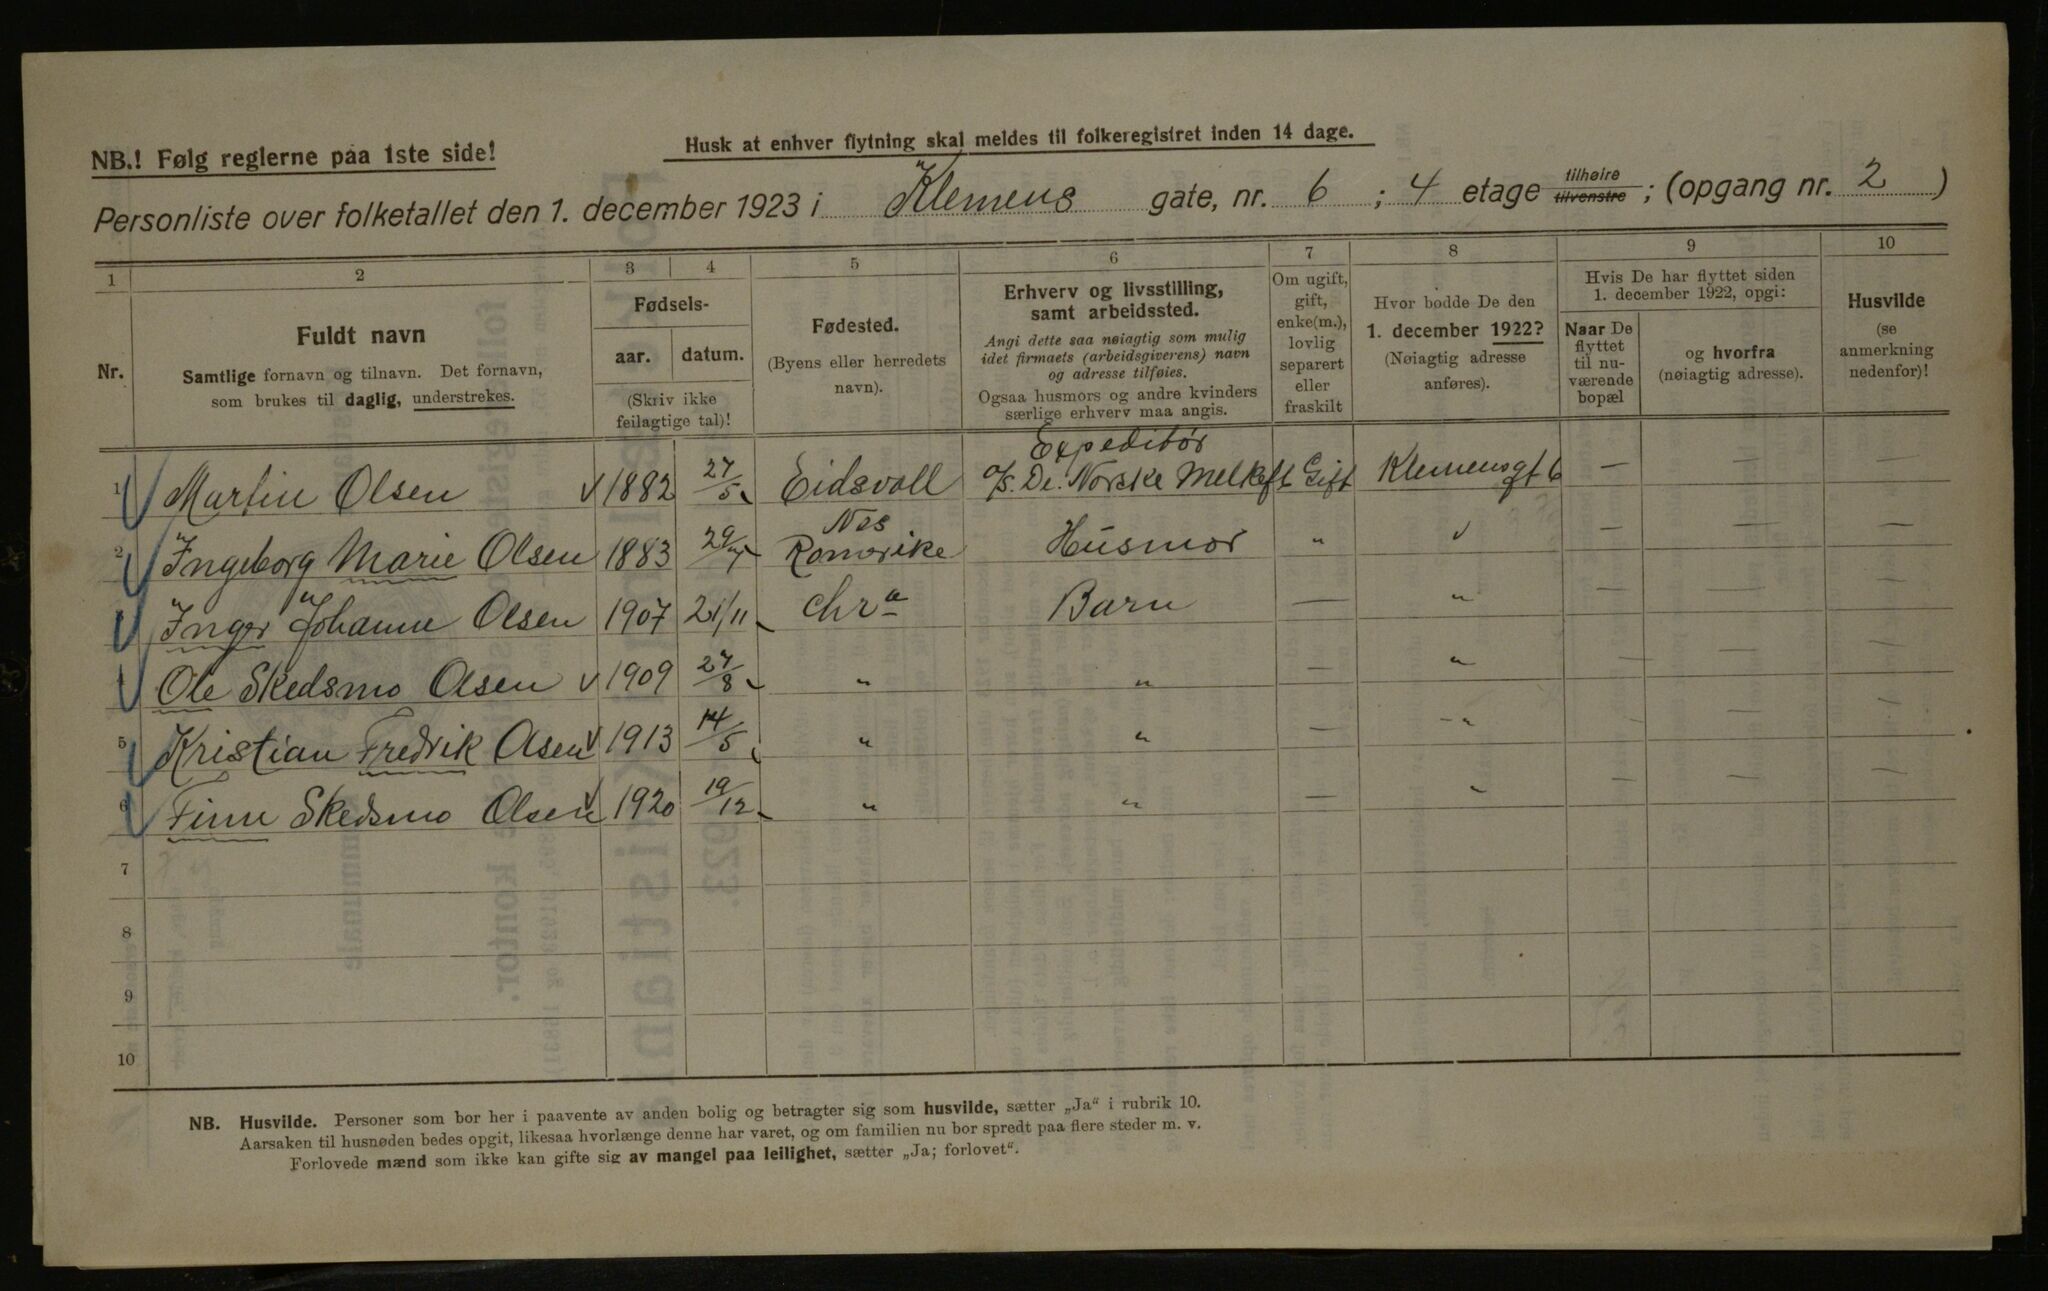 NB.! Følg reglerne paa 1ste side!
Husk at enhver flytning skal meldes til folkeregistret inden 14 dage.
Personliste over folketallet den 1. december 1923 i Klemens gate, nr. 6 ; 4 etage tilhøire tilvenstre ; (opgang nr. 2 )
1 2 3 4 5 6 7 8 9 10
Nr.
Fuldt navn
Samtlige fornavn og tilnavn. Det fornavn,
som brukes til daglig, understrekes.
Fødsels-
aar. datum.
(Skriv ikke
feilagtige tal)!
Fødested.
(Byens eller herredets
navn).
Erhverv og livsstilling,
samt arbeidssted.
Angi dette saa nøiagtig som mulig
idet firmaets (arbeidsgiverens) navn
og adresse tilføies.
Ogsaa husmors og andre kvinders
særlige erhverv maa angis.
Om ugift,
gift,
enke(m.),
lovlig
separert
eller
fraskilt
Hvor bodde De den
1. december 1922?
(Nøiagtig adresse
anføres).
Hvis De har flyttet siden
1. december 1922, opgi:
Naar De
flyttet
til nu-
værende
bopæl
og hvorfra
(nøiagtig adresse).
Husvilde
(se
anmerkning
nedenfor)!
Expeditör
1 Martin Olsen 1882 27/5 Eidsvoll A/S. De. Norske Melkef. Gift Klemensgt 6 — — —
Nes
2 Ingeborg Marie Olsen 1883 Romerike Husmor " " — — —
Inger Johanne Olsen 1907 21/11 Chra Barn — " — — —
Ole Skedsmo Olsen 1909 27/8 " " — " — — —
5 Kristian Fredrik Olsen 1913 14/5 " " — - " — — —
6 Finn Skedsmo Olsen 1920 19/12 " " — " — — —
7
8
9
10
NB. Husvilde. Personer som bor her i paavente av anden bolig og betragter sig som husvilde, sætter „Ja“ i rubrik 10.
Aarsaken til husnøden bedes opgit, likesaa hvorlænge denne har varet, og om familien nu bor spredt paa flere steder m. v.
Forlovede mænd som ikke kan gifte sig av mangel paa leilighet, sætter „Ja; forlovet“.